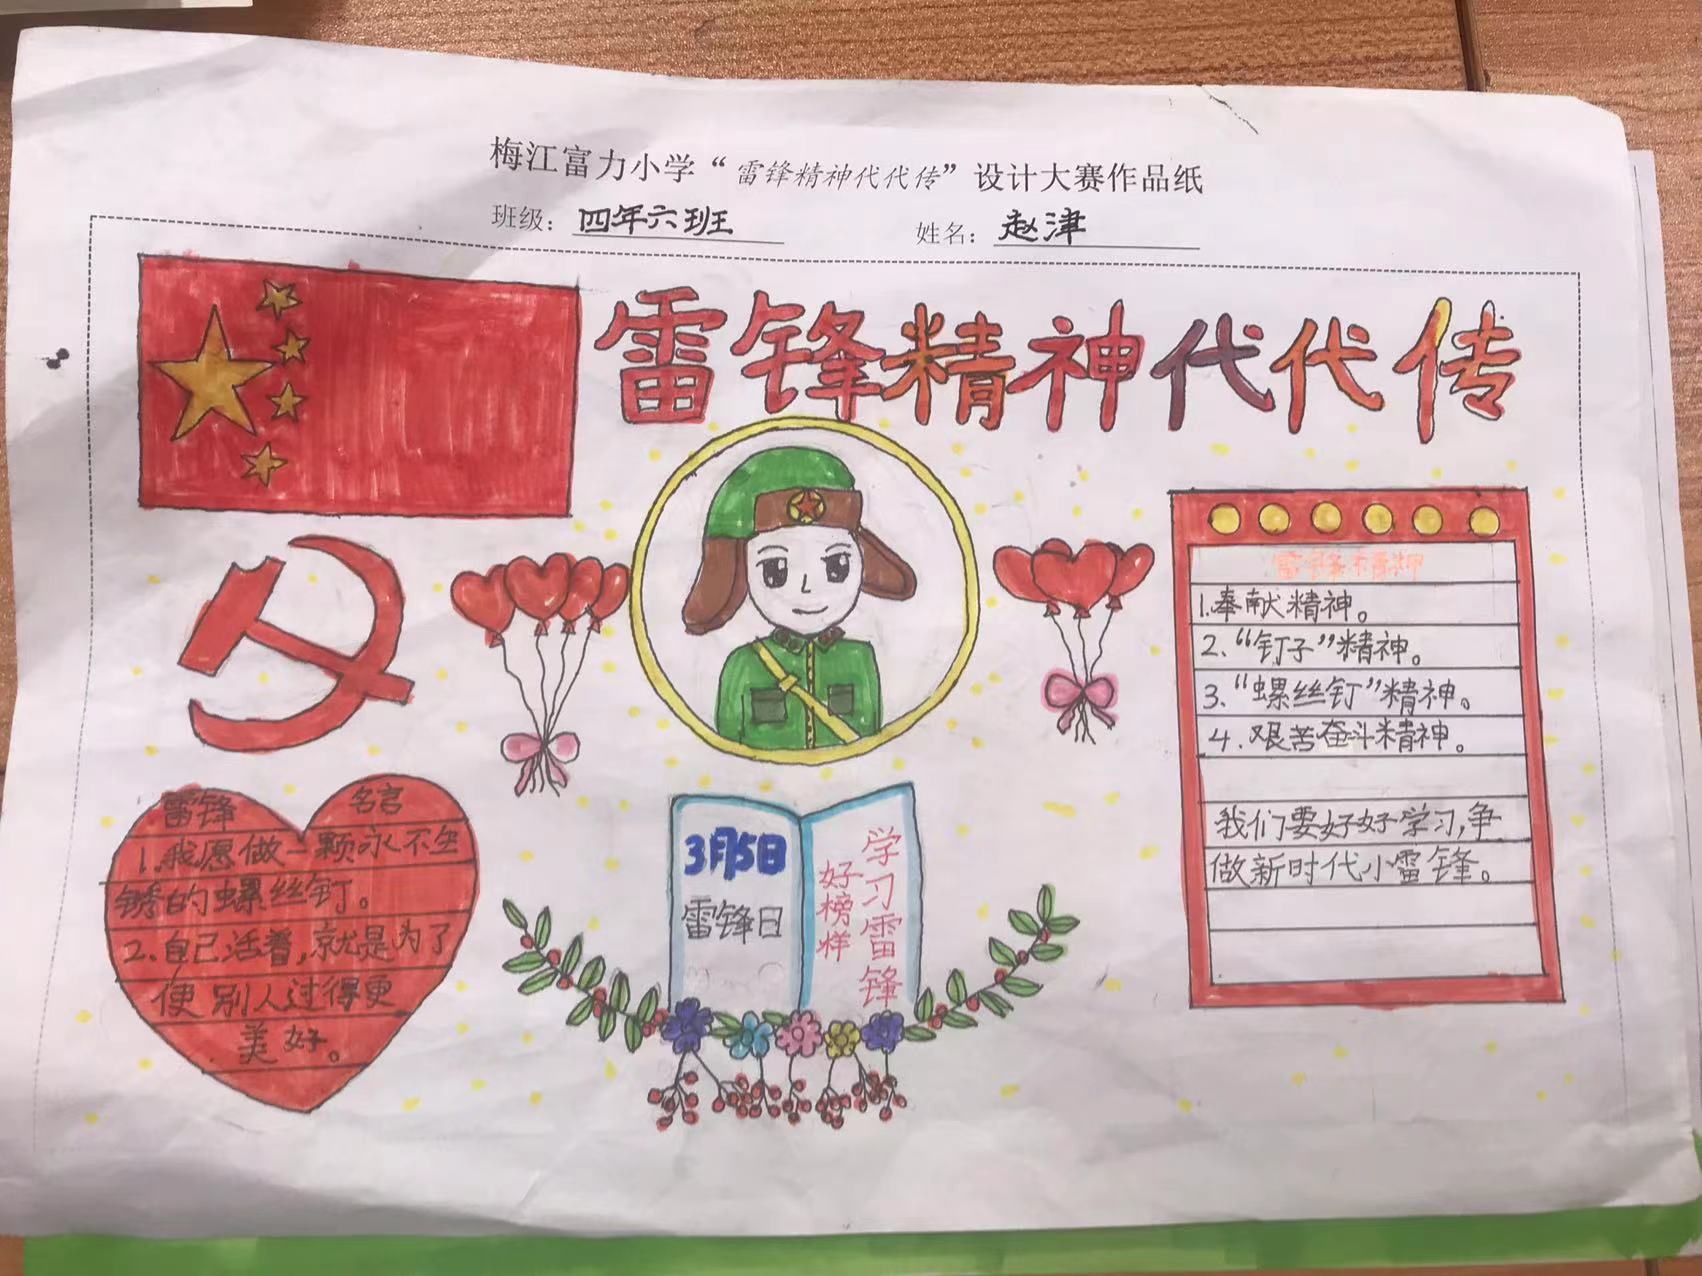 梅江富力小学“雷锋精神代代传”设计大赛作品纸
班级：四年六班 姓名：赵津
雷锋精神代代传
雷锋 名言
1.我愿做一颗永不生
锈的螺丝钉。
2.自己活着，就是为了
使别人过得更
美好。
3月5日
雷锋日
学习雷锋
好榜样
雷锋精神
1.奉献精神。
2.“钉子”精神。
3.“螺丝钉”精神。
4.艰苦奋斗精神。
我们要好好学习，争
做新时代小雷锋。